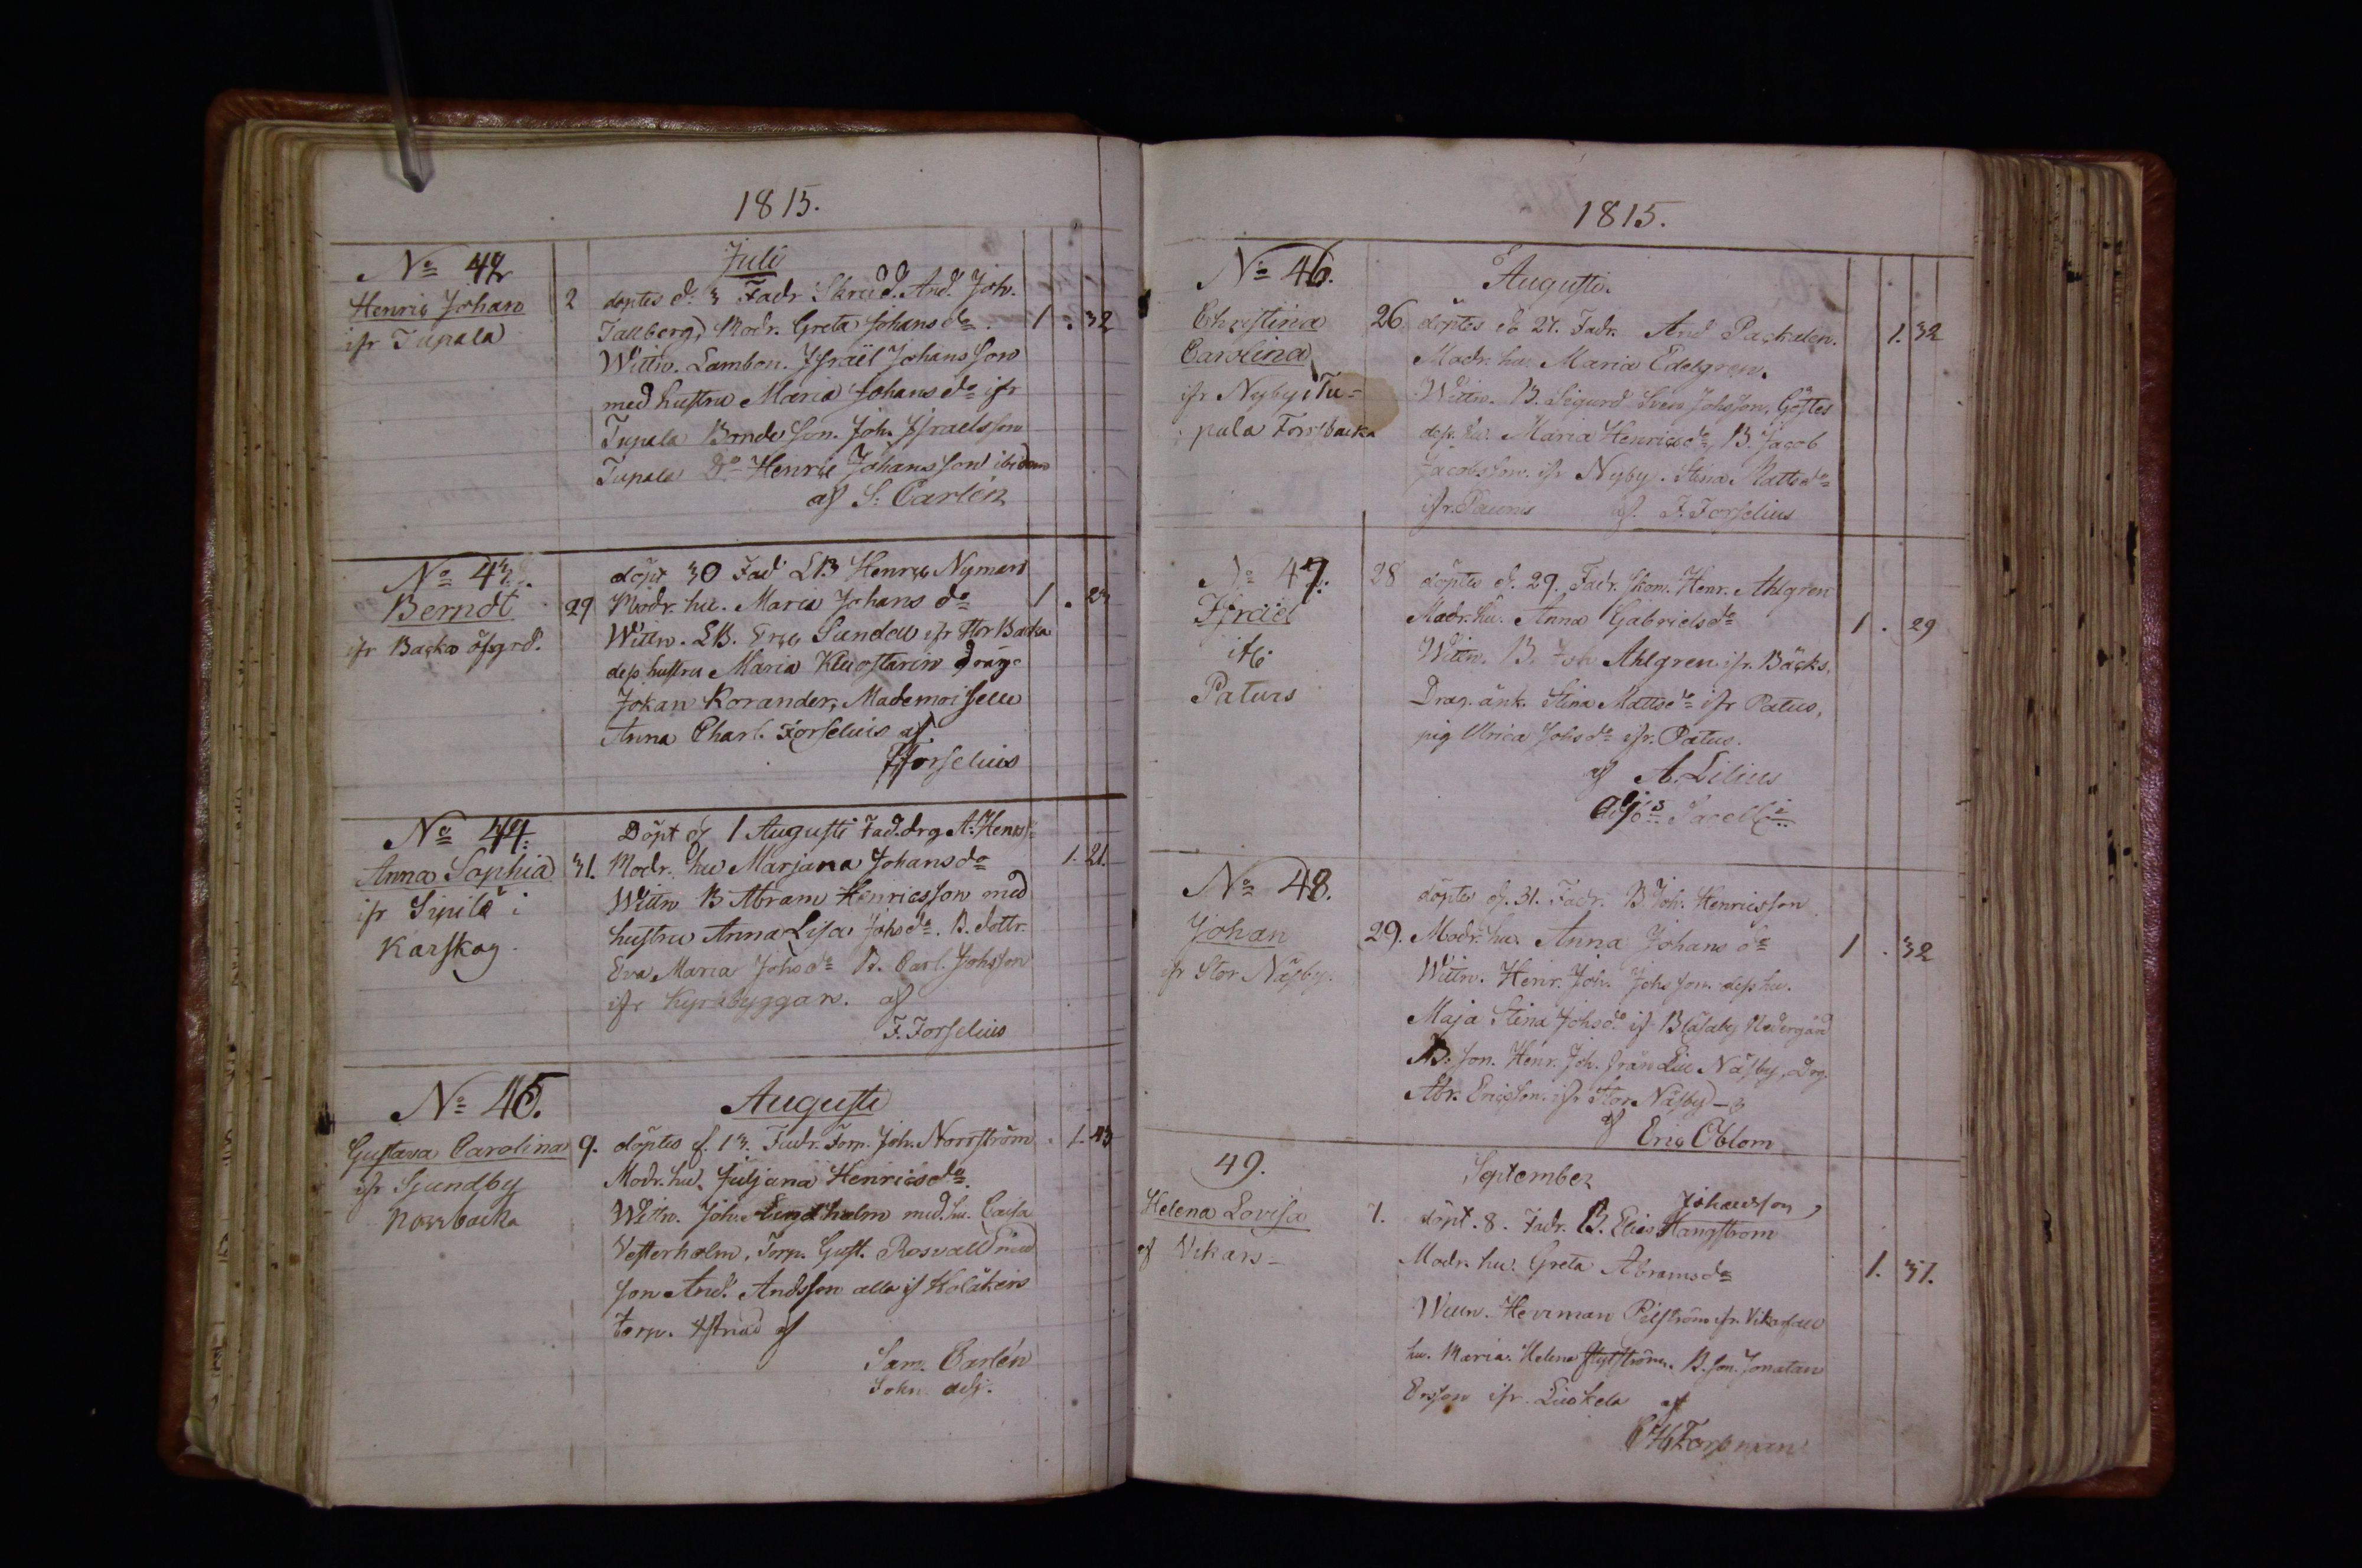 1815.
Juli
No 42
Henric Johan
ifr Tupala
2
döptes d. 3 Fadr Skräd. And. Joh.
Tallberg, Modr. Greta Johansdr.
1 . 32
Wittn. Lambon. Israël Johansson
med hustru Maria Johansdr ifr
Tupala Bondeson. Joh. Israelsson
Tupala Do Henric Johansson ibidem
af S. Carlén
No 43.
Berndt
ifr Backa öfvgrd.
29
döpt 30 Fad LB Henric Nyman
Modr. hu. Maria Johansdr
1 . 23
Wittn. LB. Eric Sundell ifr Stor Backa
dess hustru Maria Dräng
Johan Korander, Mademoiselle
Anna Charl. Forselius af
F Forselius
No 44.
Anna Sophia
ifr Sipilä i
Karskog
31.
Döpt d 1 Augusti Fad. drg A. Henrss.
Modr. hu Marjana Johansdr
1. 21.
Wittn B Abram Henricsson med
hustru Anna Lisa Johsdr. B. dottr.
Eva Maria Johsdr B. Carl Johsson
ifr Kyrkbyggan. af
F. Forselius
No 45.
Gustava Carolina
ifr Sjundby
Norrbacka
Augusti
9.
döptes d. 13. Fadr. Torp. Joh. Norrström
1. 43
Modr. hu. Juljana Henricsdr.
Wittn. Joh. Lindholm med. hu. Caisa
Vesterholm, Torp. Gust. Rosvall med
son And. Andsson alla if Kolåkers
torp. af
Sam. Carlén
Sokn. adj.
1815.
No 46.
Christina
Carolina
ifr Nyby i Tu-
pala Forssbacka
Augusti.
26.
döptes d 27. Fadr. And Packalen.
1. 32
Modr. hu. Maria Edelgren.
Wittn. B. Sigurd Sven Johsson, Göstes
dess. hu. Maria Henricsdr, B. Jacob
Jacobsson. ifr Nyby. Stina Mattsdr
ifr. Paunis af. F. Forselius
No 47.
Israel
ifr
Paturs
28
döptes d. 29. Fadr. Skom. Henr. Ahlgren
Modr. hu. Anna Gabrielsdr
1 . 29
Wittn. B. Joh Ahlgren ifr. Bäcks,
Drag. änk. Stina Mattsdr ifr Patus,
pig Ulrica Johsdr ifr. Patus.
af A. Lilius
No 48.
Johan
ifr Stor Näsby.
29.
döptes d. 31. Fadr. B. Joh. Henricsson
Modr. hu. Anna Johansdr
1 . 32
Wittn. Henr. Joh. Johsson. dess hu.
Maja Stina Johsdr if Blåsaby Nedergård
B. son. Henr. Joh. från Lill Näsby, Drg.
Abr. Ericsson. ifr Stor Näsby
af Eric Oblom
49.
Helena Lovisa
af Vikars
September
7.
Johansson,
döpt. 8. Fadr. B. Elias Hangström
Modr. hu. Greta Abramsdr
1. 31.
Wittn. Herrman Pilström ifr.
hu. Maria. Helena B. son. Jonatan
Ersson ifr. Liuskela af
C H Forsman